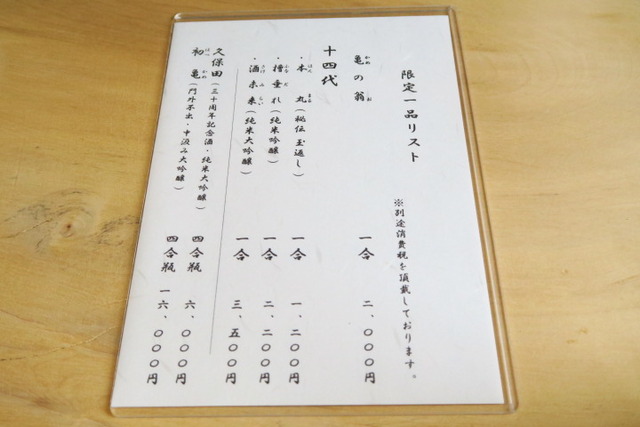 限定一品リスト
※別途消費税を頂戴しております。
亀の翁 一合 二、〇〇〇円
かめ お
十四代
・本丸(秘伝玉返し) 一合 一、二〇〇円
ほん まる
・槽垂れ(純米吟醸) 一合 二、二〇〇円
ふな だ
・酒未来(純米大吟醸) 一合 三、五〇〇円
さけ み らい
久保田(三十周年記念酒・純米大吟醸) 四合瓶 六、〇〇〇円
初亀(門外不出・中汲み大吟醸) 四合瓶 一六、〇〇〇円
はつ かめ